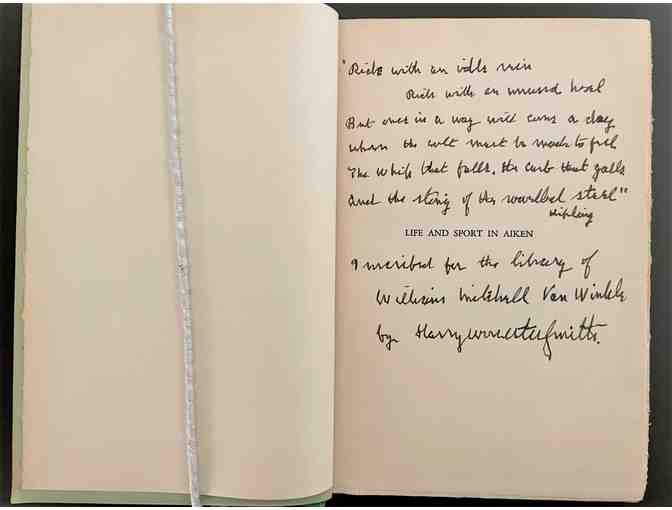 "Ride with an idle rein
Ride with an unused heel
But once in a way will come a day
when the colt must be made to feel
The whip that falls. the curb that galls
And the sting of the rowelled steel"
Kipling
LIFE AND SPORT IN AIKEN
Inscribed for the library of
William Mitchell Van Winkle
by Harry Worcester Smith.